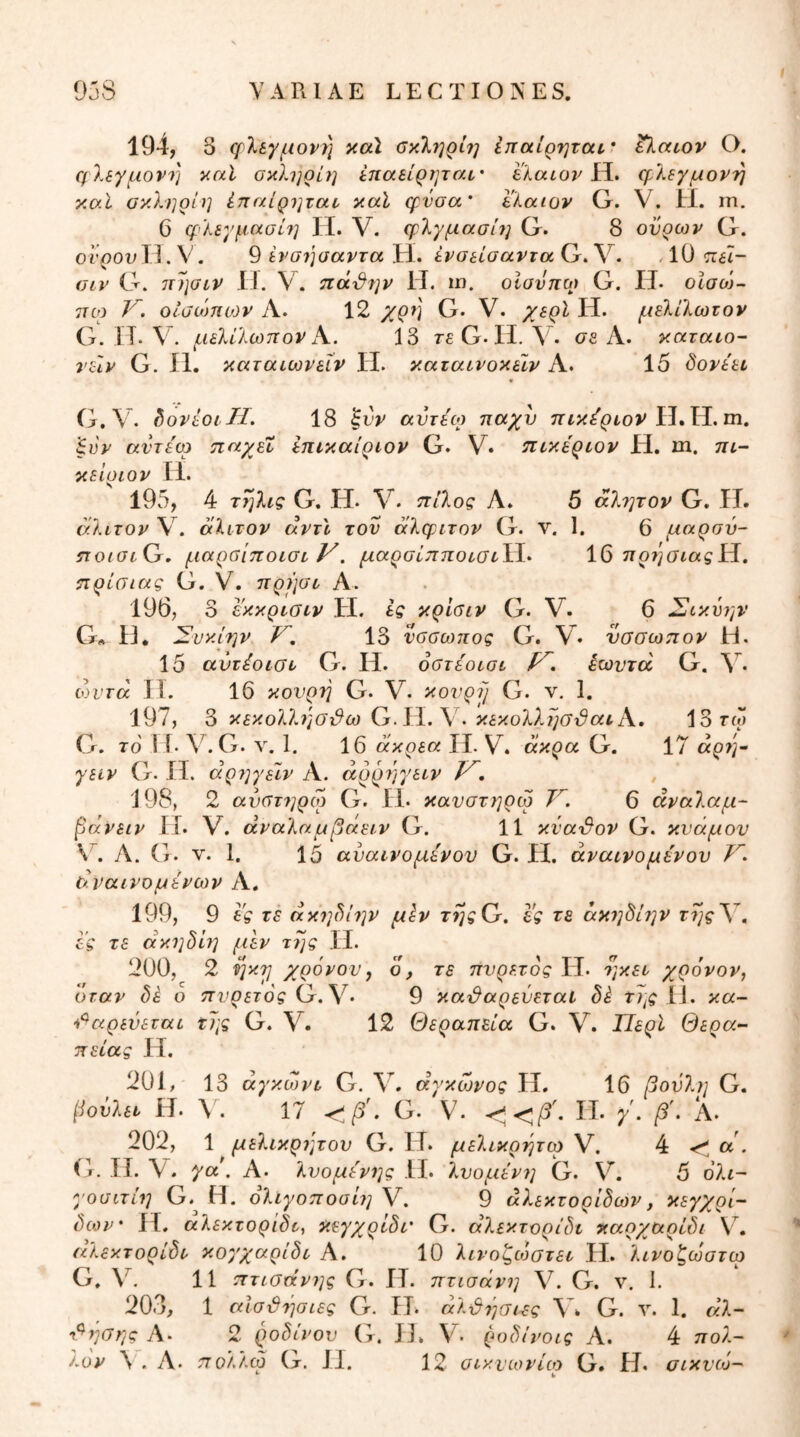 958 VARIAE LECTIONES.
194, 3 φλεγμονὴ καὶ σκληρίη ἐπαίρηται· ἔλαιον O.
φλεγμονὴ καὶ σκληρίη ἐπαείρηται· ἔλαιον H. φλεγμονὴ
καὶ σκληρίη ἐπαίρηται καὶ φύσα· ἔλαιον G. V. H. m.
6 φλεγμασίη H. V. φλγμασίη G. 8 οὔρων G.
οὔρου H. V. 9 ἐνσήσαντα H. ἐνσείσαντα G. V. 10 πεῖ-
σιν G. πῆσιν H. V. πάθην H. m. οἰσύπῳ G. H. οἰσώ-
πῳ V. οἰσώπων A. 12 χρὴ G. V. χερὶ H. μελίλωτον
G. H. V. μελίλωπον A. 13 τε G. H. V. σε A. καταιο-
νεῖν G. H. καταιωνεῖν H. καταινοκεῖν A. 15 δονέει
G. V. δονέοι H. 18 ξὺν αὐτέῳ παχὺ πικέριον H. H. m.
ξὺν αὐτέῳ παχεῖ ἐπικαίριον G. V. πικέριον H. m. πι-
κείριον H.
195, 4 τῆλις G. H. V. πῖλος A. 5 ἄλητον G. H.
ἄλιτον V. ἄλιτον ἀντὶ τοῦ ἄλφιτον G. v. l. 6 μαρσύ-
ποισι G. μαρσίποισι V. μαρσίπποισι H. 16 πρήσιας H.
πρίσιας G. V. πρῆσι A.
196, 3 ἔκκρισιν H. ἐς κρίσιν G. V. 6 Σικύην
G. H. Συκίην V. 13 ὕσσωπος G. V. ὕσσωπον H.
15 αὐτέοισι G. H. ὀστέοισι V. ἑωυτά G. V.
ὠυτά H. 16 κουρὴ G. V. κουρῇ G. v. l.
197, 3 κεκολλήσθω G. H. V. κεκολλῆσθαι A. 13 τῷ
G. τὸ H. V. G. v. l. 16 ἄκρεα H. V. ἄκρα G. 17 ἀρή-
γειν G. H. ἀρηγεῖν A. ἀῤῥήγειν V.
198, 2 αὐστηρῷ G. H. καυστηρῷ V. 6 ἀναλαμ-
βάνειν H. V. ἀναλαμβάειν G. 11 κύαθον G. κυάμου
V. A. G. v. l. 15 αὐαινομένου G. H. ἀναινομένου V.
ἀναινομένων A.
199, 9 ἔς τε ἀκηδίην μὲν τῆς G. ἔς τε ἀκηδίην τῆς V.
ἔς τε ἀκηδίη μὲν τῆς H.
200, 2 ἥκῃ χρόνου, ὅ, τε πυρετὸς H. ἥκει χρόνον,
ὅταν δὲ ὁ πυρετὸς G. V. 9 καθαρεύεται δὲ τῆς H. κα-
θαρεύεται τῆς G. V. 12 Θεραπεία G. V. Περὶ Θερα-
πείας H.
201, 13 ἀγκῶνι G. V. ἀγκῶνος H. 16 βούλῃ G.
βούλει H. V. 17 < β΄. G. V. < < β΄. H. γ΄. β΄. A.
202, 1 μελικρήτου G. H. μελικρήτῳ V. 4 < α΄.
G. H. V. γα΄. A. λυομένης H. λυομένη G. V. 5 ὀλι-
γοσιτίη G. H. ὀλιγοποσίη V. 9 ἀλεκτορίδων, κεγχρί-
δων· H. ἀλεκτορίδι, κεγχρίδι· G. ἀλεκτορίδι καρχαρίδι V.
ἀλεκτορίδι κογχαρίδι A. 10 λινοζώστει H. λινοζώστῳ
G. V. 11 πτισάνης G. H. πτισάνη V. G. v. l.
203, 1 αἰσθήσιες G. H. ἀλθήσιες V. G. v. l. ἀλ-
θήσης A. 2 ῥοδίνου G. H. V. ῥοδίνοις A. 4 πολ-
λὸν V. A. πολλῷ G. H. 12 σικυωνίῳ G. H. σικυώ-